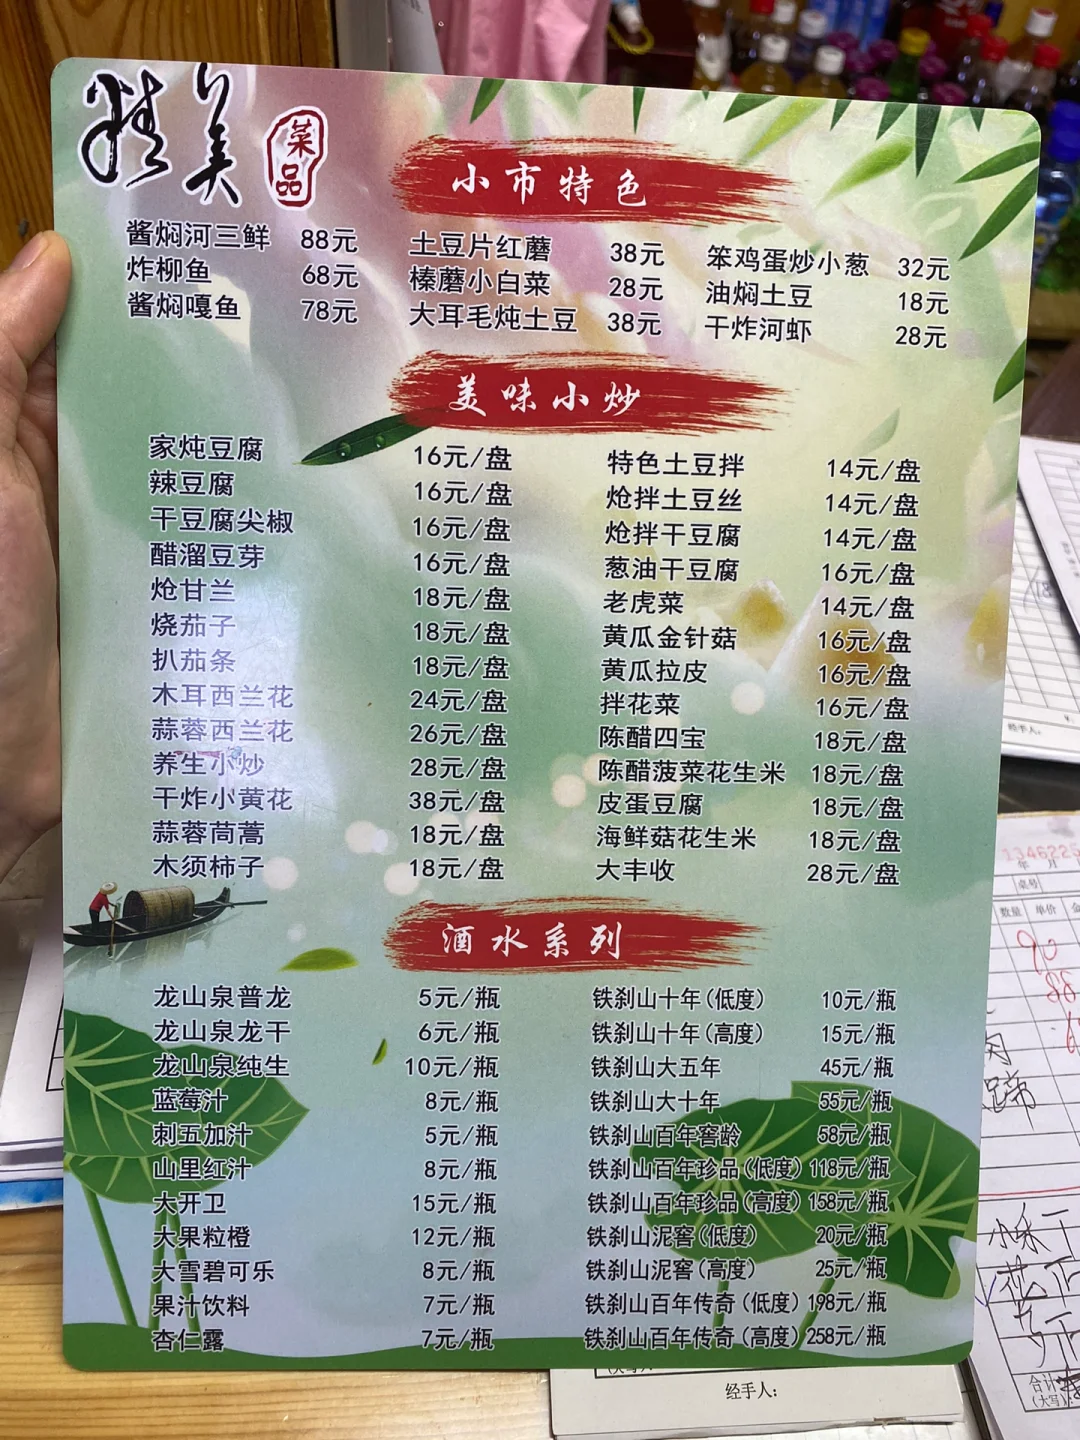 精美
菜品
小市特色
酱焖河三鲜 88元 土豆片红蘑 38元 笨鸡蛋炒小葱 32元
炸柳鱼 68元 榛蘑小白菜 28元 油焖土豆 18元
酱焖嘎鱼 78元 大耳毛炖土豆 38元 干炸河虾 28元
美味小炒
家炖豆腐 16元/盘 特色土豆拌 14元/盘
辣豆腐 16元/盘 炝拌土豆丝 14元/盘
干豆腐尖椒 16元/盘 炝拌干豆腐 14元/盘
醋溜豆芽 16元/盘 葱油干豆腐 16元/盘
炝甘兰 18元/盘 老虎菜 14元/盘
烧茄子 18元/盘 黄瓜金针菇 16元/盘
扒茄条 18元/盘 黄瓜拉皮 16元/盘
木耳西兰花 24元/盘 拌花菜 16元/盘
蒜蓉西兰花 26元/盘 陈醋四宝 18元/盘
养生小炒 28元/盘 陈醋菠菜花生米 18元/盘
干炸小黄花 38元/盘 皮蛋豆腐 18元/盘
蒜蓉茼蒿 18元/盘 海鲜菇花生米 18元/盘
木须柿子 18元/盘 大丰收 28元/盘
酒水系列
龙山泉普龙 5元/瓶 铁刹山十年(低度) 10元/瓶
龙山泉龙干 6元/瓶 铁刹山十年(高度) 15元/瓶
龙山泉纯生 10元/瓶 铁刹山大五年 45元/瓶
蓝莓汁 8元/瓶 铁刹山大十年 55元/瓶
刺五加汁 5元/瓶 铁刹山百年窖龄 58元/瓶
山里红汁 8元/瓶 铁刹山百年珍品(低度) 118元/瓶
大开卫 15元/瓶 铁刹山百年珍品(高度) 158元/瓶
大果粒橙 12元/瓶 铁刹山泥窖(低度) 20元/瓶
大雪碧可乐 8元/瓶 铁刹山泥窖(高度) 25元/瓶
果汁饮料 7元/瓶 铁刹山百年传奇(低度) 198元/瓶
杏仁露 7元/瓶 铁刹山百年传奇(高度) 258元/瓶
经手人:
经手人:
1346225
年 月
桌号
数量 单价 金
合计
(大写)